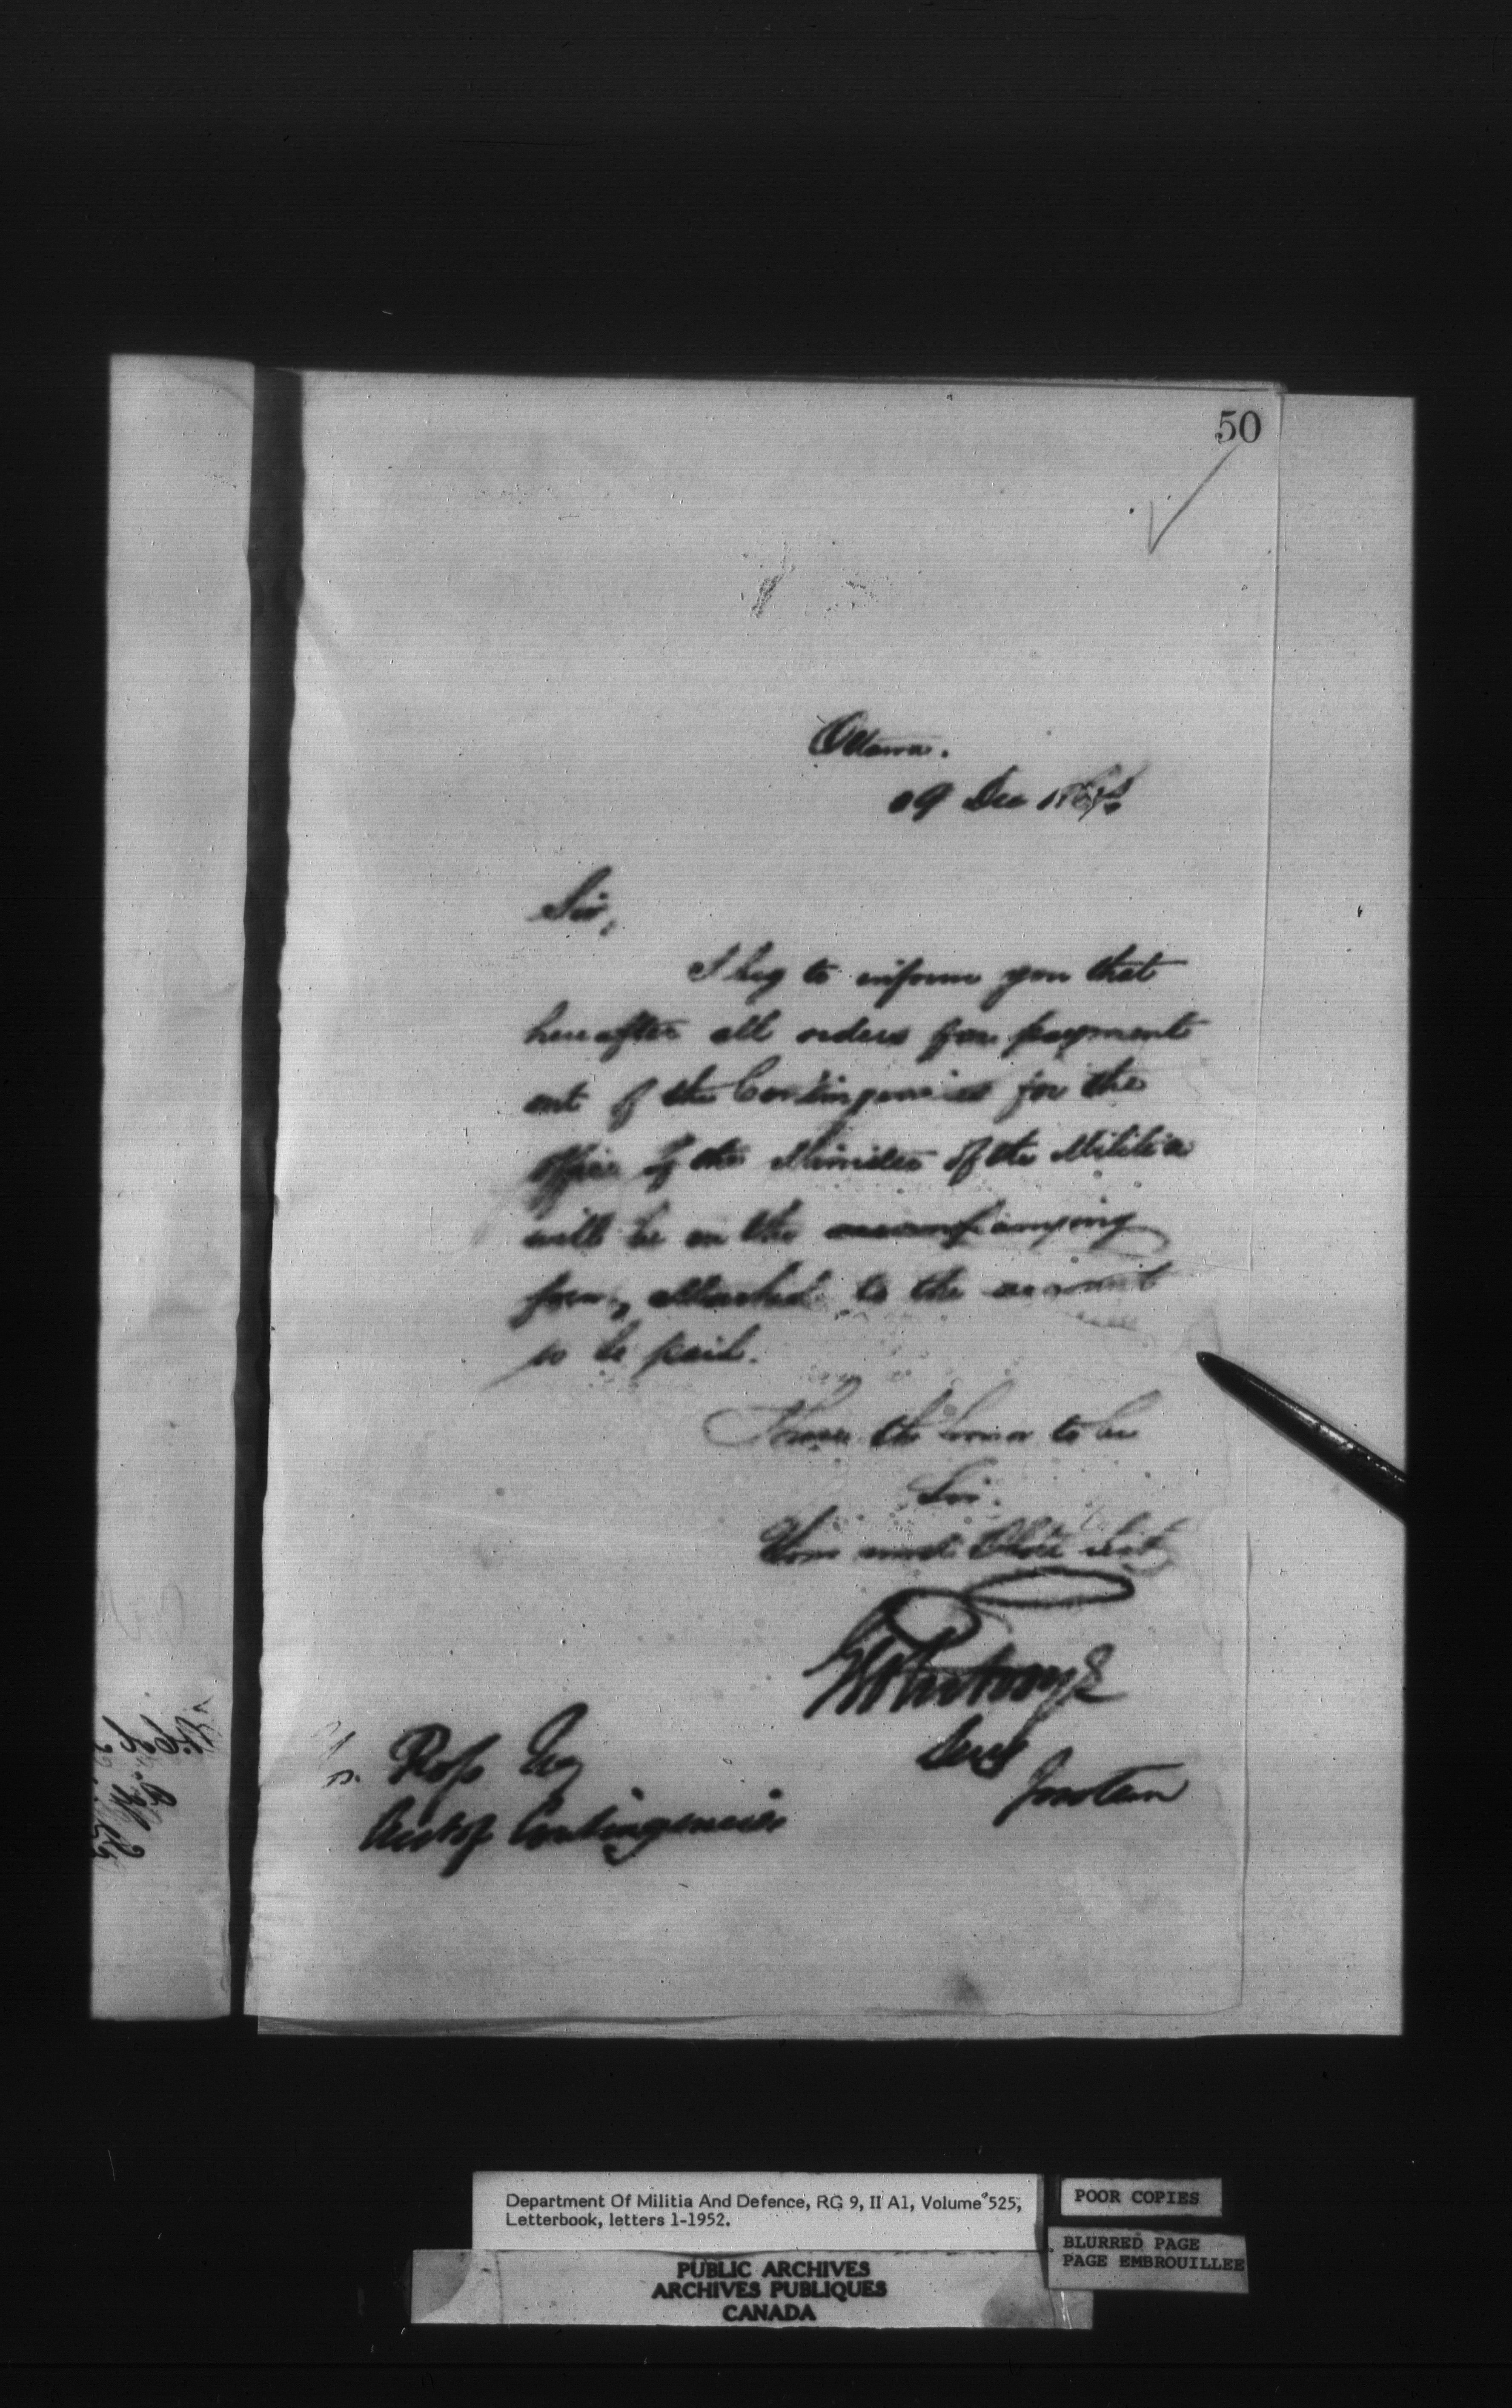 50
Ottawa.
09 Dec 1868
Sir,
I beg to inform you that
hereafter all orders for payment
out of the Contingencies for the
office of the Minister of the Militia
will be on the accompanying
form, attached to the account
to be paid.
I have the honor to be
Sir.
Your most Obdt Servt
Ross Esq
Acct of Contingencies
Department Of Militia And Defence, RG 9, II A1, Volume 525,
Letterbook, letters 1-1952.
POOR COPIES
BLURRED PAGE
PAGE EMBROUILLEE
PUBLIC ARCHIVES
ARCHIVES PUBLIQUES
CANADA